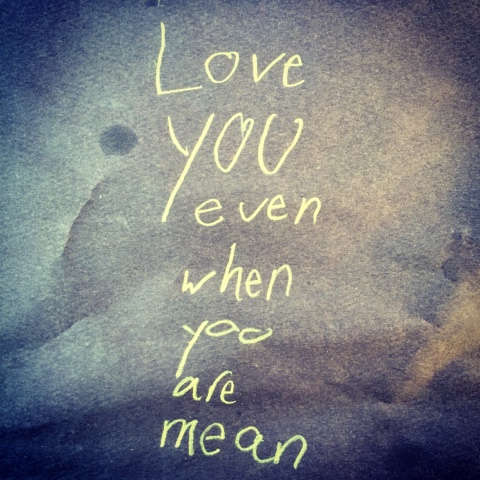 Love
YOU
even
when
you
are
mean